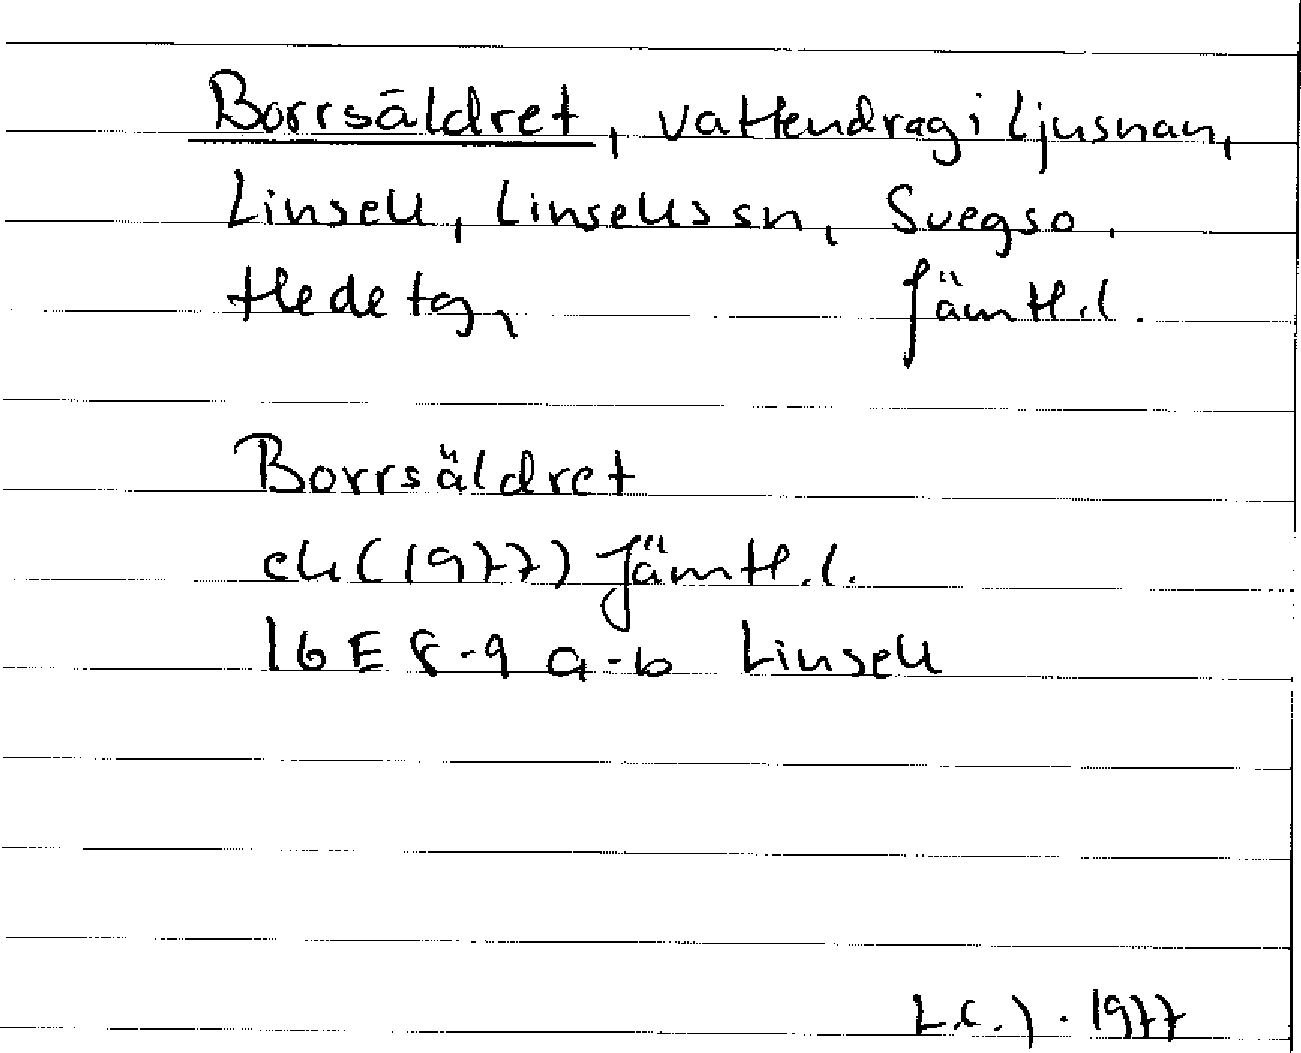 Borrsäldret, vattendrag i Ljusnan,
Linsell, Linsells sn, Svegs so.
Hede tg, Jämtl. l.
Borrsäldret
ek (1977) Jämtl. l.
16 E 8-9 a-b Linsell
1977